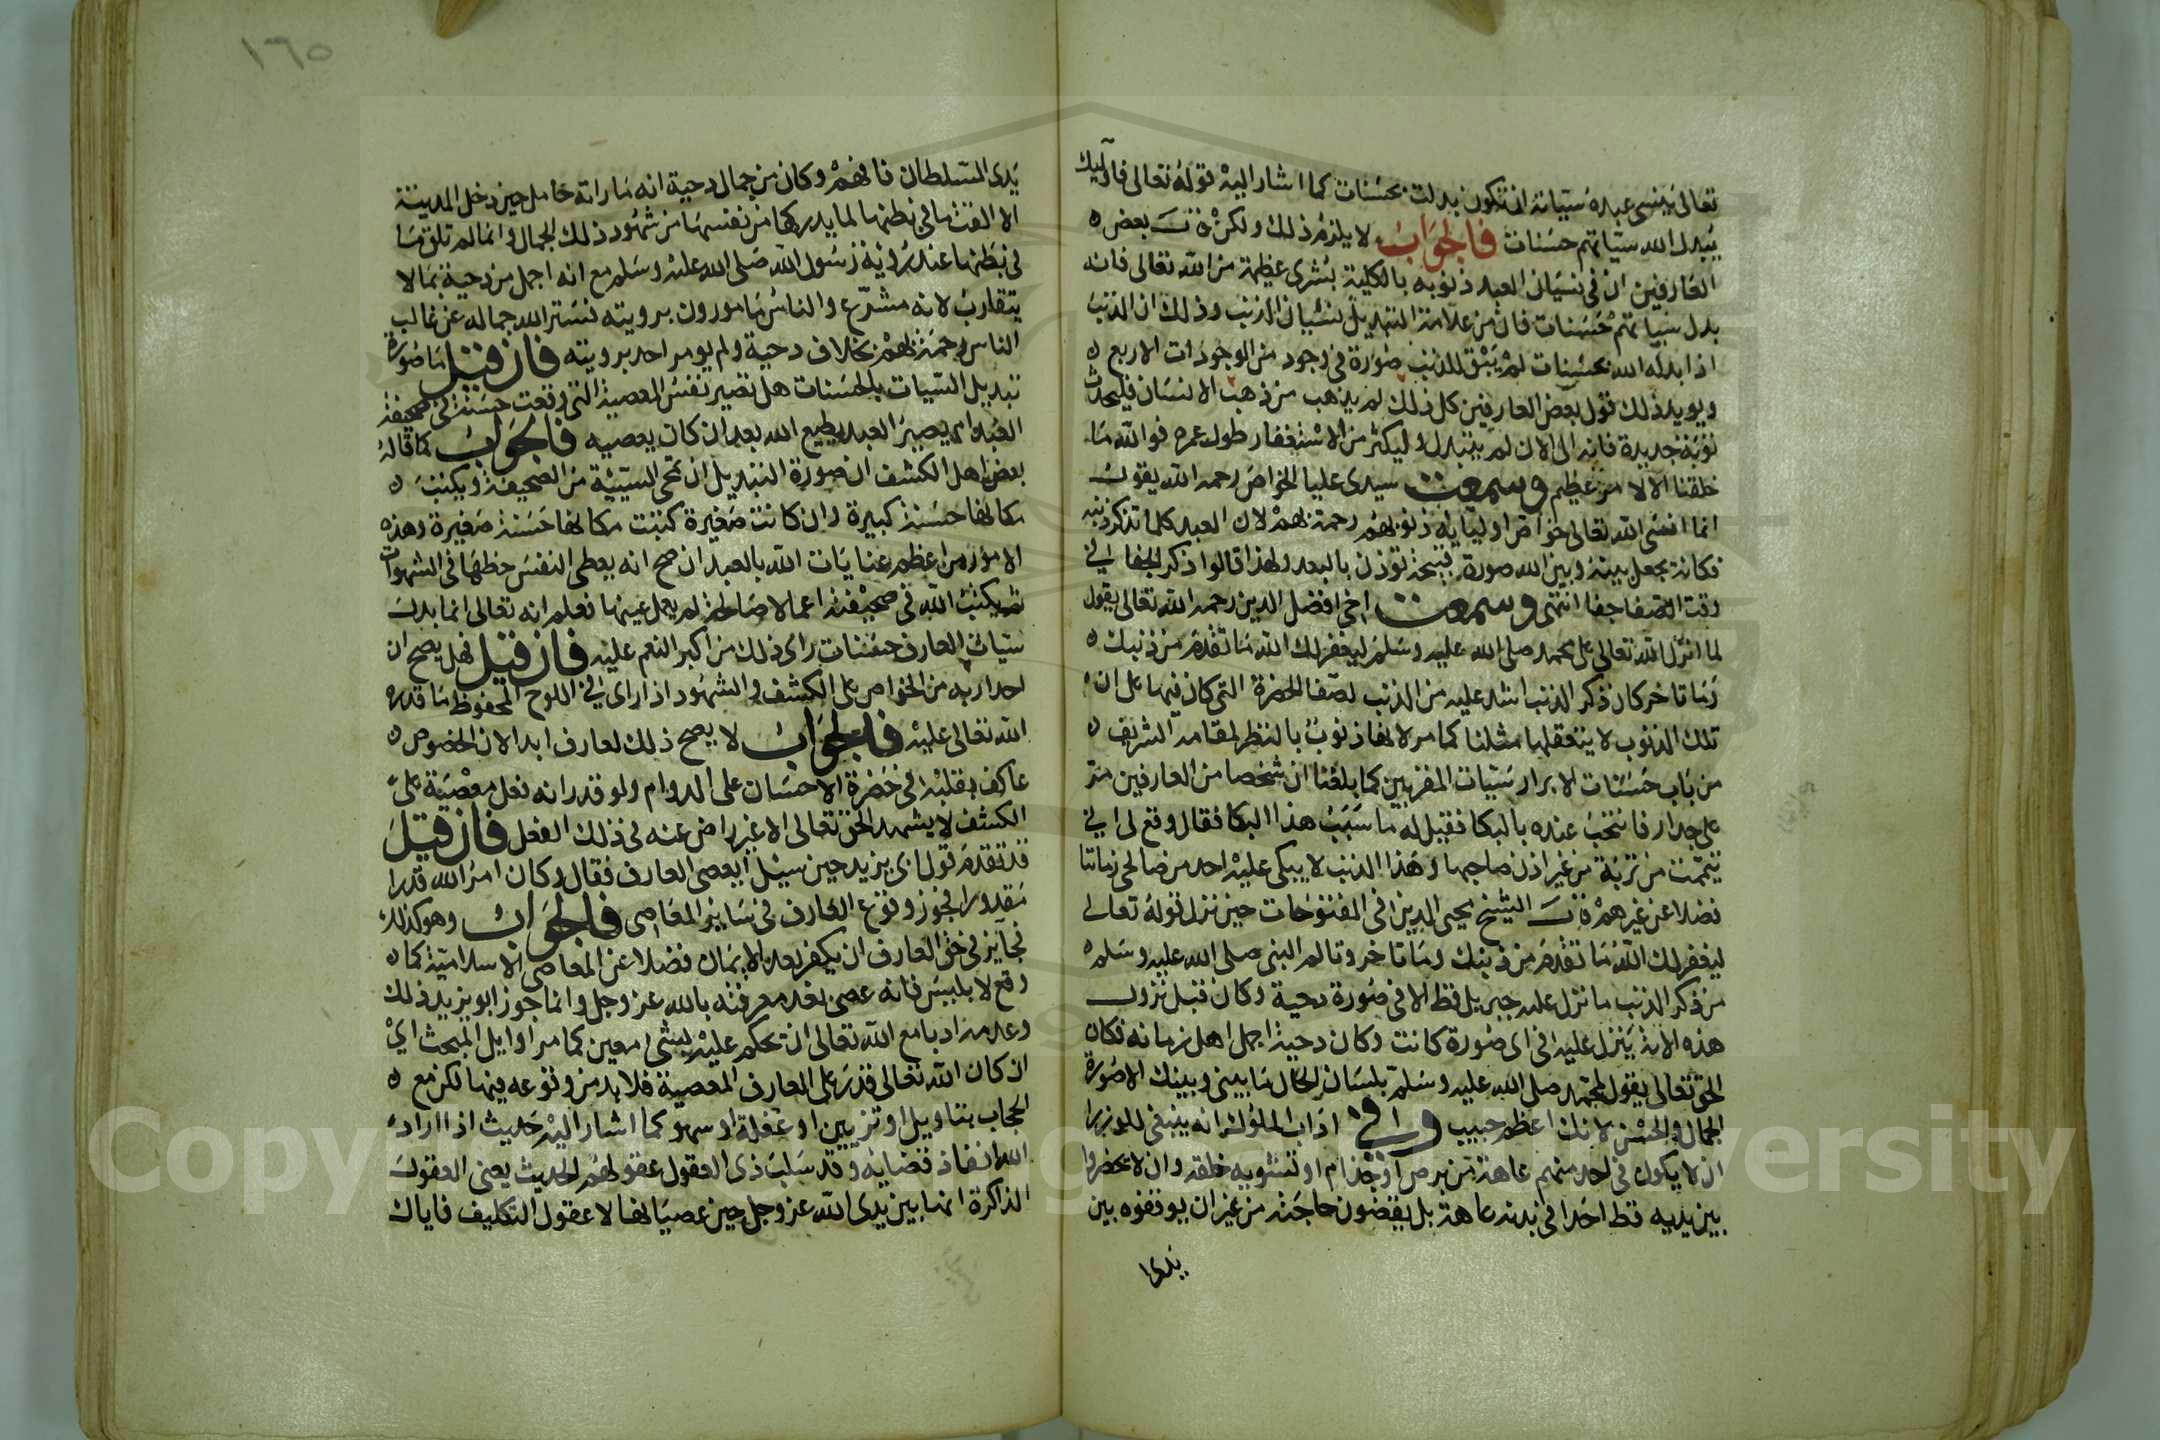 تعالى ينسى عبده سيئاته ان تكون بدلت بحسنات كما اشار اليه قوله تعالى فاولئك
يبدل الله سيئاتهم حسنات فالجواب لا يلزم ذلك ولكن قال بعض
العارفين ان في نسيان العبد ذنوبه بالكلية بشرى عظيمة من الله تعالى فانه
بدل سياتهم حسنات فان من علامة التبديل نسيان الذنب وذلك ان الذنب
اذا بدله الله بحسنات لم يبق للذنب صورة في وجود من الوجودات الاربع
ويويد ذلك قول بعض العارفين كل ذلك لم يذهب من ذهب الانسان فليحدث
توبة جديدة فانه الى الان لم يتبدل وليكثر من الاستغفار طول عمره فوالله ما
خلقنا الا لامر عظيم وسمعت سيدي عليا الخواص رحمه الله يقول
انما انسى الله تعالى خواص اوليايه ذنوبهم رحمة بهم لان العبد كلما تذكر ذنبه
فكانه يجعل بينه وبين الله صورة قبيحة توذن بالبعد ولهذا قالوا ذكر الجفا في
وقت الصفا جفا انتهى وسمعت اخي افضل الدين رحمه الله تعالى يقول
لما انزل الله تعالى على محمد صلى الله عليه وسلم ليغفر لك الله ما تقدم من ذنبك
وما تاخر كان ذكر الذنب اشد عليه من الذنب لصفا الحضرة التي كان فيها على ان
تلك الذنوب لا يتعقلها مثلنا كما مر لانها ذنوب بالنظر لمقامه الشريف
من باب حسنات الابرار سيئات المقربين كما بلغنا ان شخصا من العارفين مر
على جدار فانتحب عنده بالبكا فقيل له ما سبب هذا البكا فقال وقع لي اني
تيممت من تربة من غير اذن صاحبها وهذا الذنب لا يبكي عليه احد من صالحي زماننا
فضلا عن غيرهم قال الشيخ محيي الدين في الفتوحات حين نزل قوله تعالى
ليغفر لك الله ما تقدم من ذنبك وما تاخر وتالم النبي صلى الله عليه وسلم
من ذكر الذنب ما نزل عليه جبريل قط الا في صورة دحية وكان قبل نزول
هذه الاية ينزل عليه في اي صورة كانت وكان دحية اجمل اهل زمانه فكان
الحق تعالى يقول لمحمد صلى الله عليه وسلم بلسان الحال ما بيني وبينك الا صورة
الجمال والحسن لانك اعظم حبيب وفي اداب الملوك انه ينبغي للوزرا
ان لا يكون في احد منهم عاهة من برص او جذام او تشويه خلقه وان لا يحضروا
بين يديه قط احدا في بدنه عاهة بل يقضون حاجته من غير ان يوقفوه بين
يدي
١٦٥
يدي السلطان فافهم وكان من جمال دحية انه ما راته حامل حين دخل المدينة
الا القت ما في بطنها لما يدركها من نفسها من شهود ذلك الجمال وانما لم تلق ما
في بطنها عند رؤية رسول الله صلى الله عليه وسلم مع انه اجمل من دحية بما لا
يتقارب لانه مشرع والناس مامورون برويته فستر الله جماله عن غالب
الناس رحمة بهم بخلاف دحية ولم يومر احد برويته فان قيل ما صورة
تبديل السيات بالحسنات هل تصير نفس المعصية التي وقعت حسنة في صحيفة
العبد ام يصير العبد يطيع الله بعد ان كان يعصيه فالجواب كما قاله
بعض اهل الكشف ان صورة التبديل ان تمحى السيئة من الصحيفة ويكتب
مكانها حسنة كبيرة وان كانت صغيرة كتبت مكانها حسنة صغيرة وهذه
الامور من اعظم عنايات الله بالعبد ان صح انه يعطي النفس حظها في الشهوات
ثم يكتب الله في صحيفته اعمالا صالحة لم يعمل عينها فعلم انه تعالى انما بدل
سيات العارف حسنات راى ذلك من اكبر النعم عليه فان قيل فهل يصح ان
احدا ربه من الخواص على الكشف والشهود اذا راى في اللوح المحفوظ ما قدره
الله تعالى عليه فالجواب لا يصح ذلك لعارف ابدا لان الخصوص
عاكف بقلبه في حضرة الاحسان على الدوام ولو قدر انه فعل معصية على
الكشف لا يشهد الحق تعالى الا غير راض عنه في ذلك الفعل فان قيل
قد تقدم قول ابي يزيد حين سئل ايعصي العارف فقال وكان امر الله قدرا
مقدورا فجوز وقوع العارف في ساير المعاصي فالجواب وهو كذلك
فجايز في حق العارف ان يكفر بعد الايمان فضلا عن المعاصي الاسلامية كما
وقع لابليس فانه عصى بعد معرفته بالله عز وجل وانما جوز ابو يزيد ذلك
وعدمه ادبا مع الله تعالى ان تحكم عليه بشي معين كما مر اوايل المبحث اي
ان كان الله تعالى قدر على العارف المعصية فلا بد من وقوعه فيها لكن مع
الحجاب بتاويل او تزيين او غفلة او سهو كما اشار اليه حديث اذا اراد
الله انفاذ قضايه وقدره سلب ذوي العقول عقولهم الحديث يعني العقول
الذاكرة انها بين يدي الله عز وجل حين عصيانها لا عقول التكليف فاياك